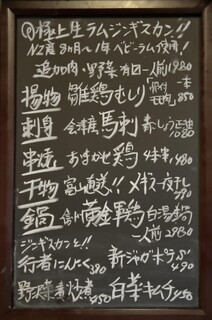 極上生ラムジンギスカン!!
NZ産8ヶ月〜1年ベビーラム使用!
追加肉・野菜有ロ一人前1980
揚物 雛鶏むしり 一本 850
刺身 会津産馬刺 赤しょうゆ 1080
串焼 おまかせ鶏 4本串 1,480
干物 富山直送!! メギス一夜干し
鍋 信州黄金軍鶏 白湯鍋 一人前 2980
ジンギスカンと!!
行者にんにく 390 新ジャガポテフラ 490
野沢菜煮 550 白菜キムチ 450